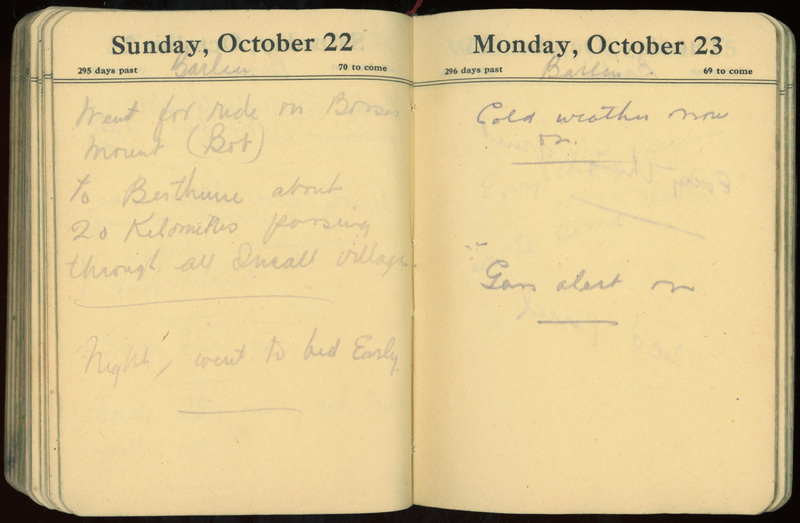 Sunday, October 22
295 days past
70 to come
Barlin
Went for ride on Bosses
mount (Bob)
to Besthune about
20 Kilometres passing
through all Small village
Night, went to bed Early
Monday, October 23
296 days past
69 to come
Barlin
Cold weather now
on.
Gas alert on